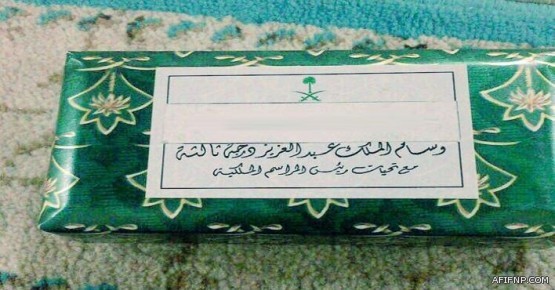 وسام الملك عبدالعزيز درجة ثالثة
مع تحيات رئيس المراسم الملكية
AFIFNP.COM